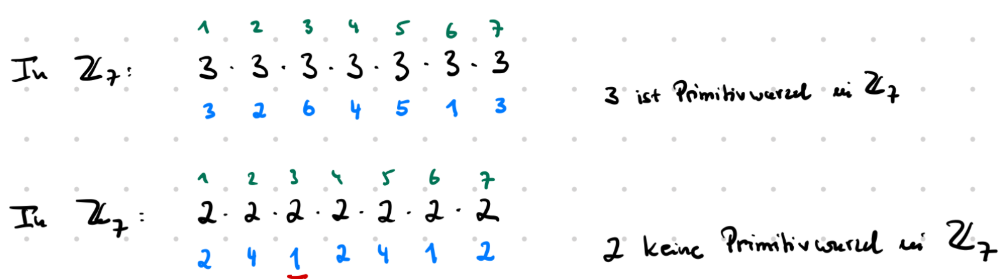 1 2 3 4 5 6 7
In ℤ₇: 3 · 3 · 3 · 3 · 3 · 3 · 3
3 2 6 4 5 1 3
3 ist Primitivwurzel in ℤ₇
1 2 3 4 5 6 7
In ℤ₇: 2 · 2 · 2 · 2 · 2 · 2 · 2
2 4 1 2 4 1 2
2 keine Primitivwurzel in ℤ₇